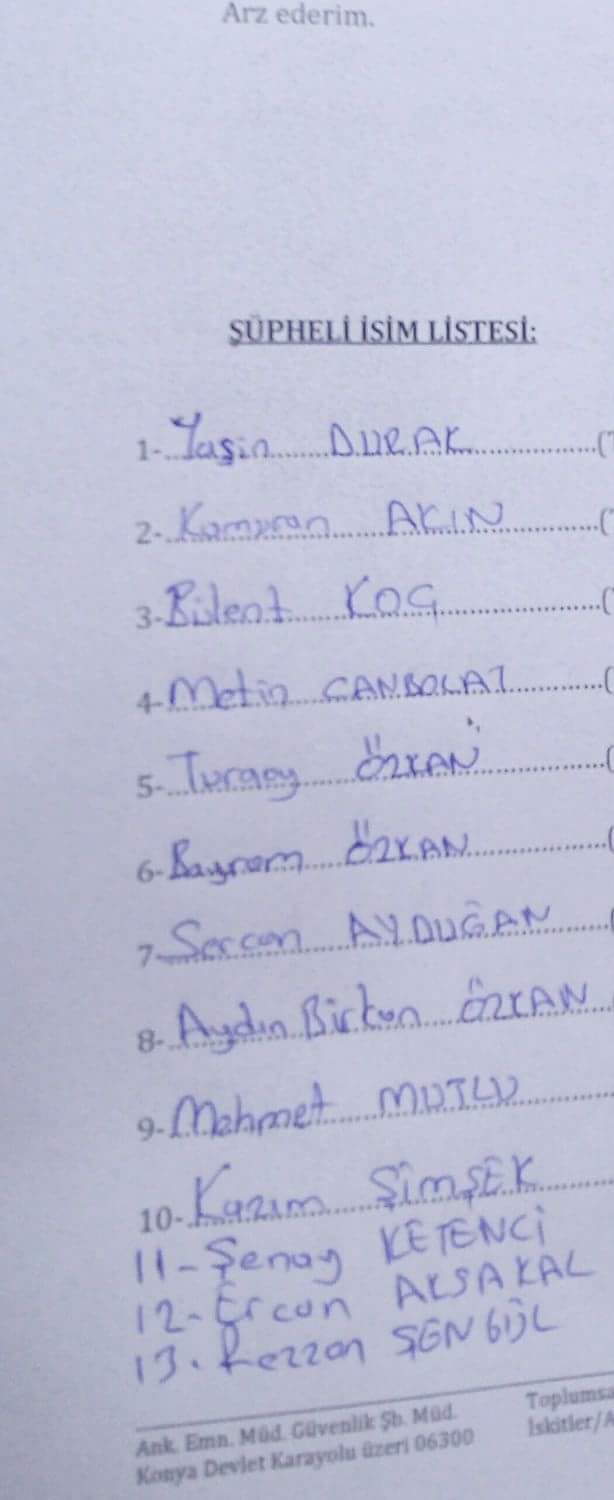 Arz ederim.
ŞÜPHELİ İSİM LİSTESİ:
1-..Yaşin.......DURAK....................(
2-..Kamuran......AKIN..............(
3-Bülent.......KOÇ......................(
4-Metin....CANBOLAT............(
5-..Turgay.......ÖZKAN................(
6-Bayram.....ÖZKAN..................(
7-Sercan.....AYDUĞAN........(
8-..Aydın Birkan....ÖZKAN...
9-Mehmet......MUTLU............
10-Kazım.......ŞİMŞEK..........
11-Şenay KETENCİ
12-Ercan AKSAKAL
13. Rezzan ŞENGÜL
Ank. Emn. Müd. Güvenlik Şb. Müd.
Konya Devlet Karayolu üzeri 06300
Toplumsa
İskitler/A